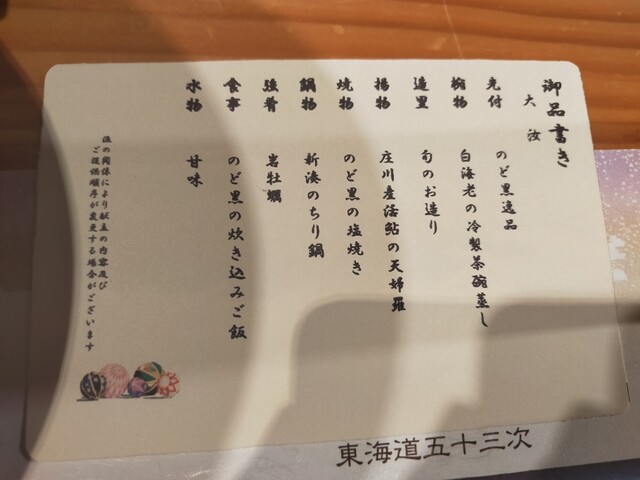 御品書き
大汝
先付 のど黒逸品
椀物 白海老の冷製茶碗蒸し
造里 旬のお造り
揚物 庄川産活鮎の天婦羅
焼物 のど黒の塩焼き
鍋物 新湊のちり鍋
強肴 岩牡蠣
食事 のど黒の炊き込みご飯
水物 甘味
仕入の関係により献立の内容及び
ご提供順序が変更する場合がございます
東海道五十三次